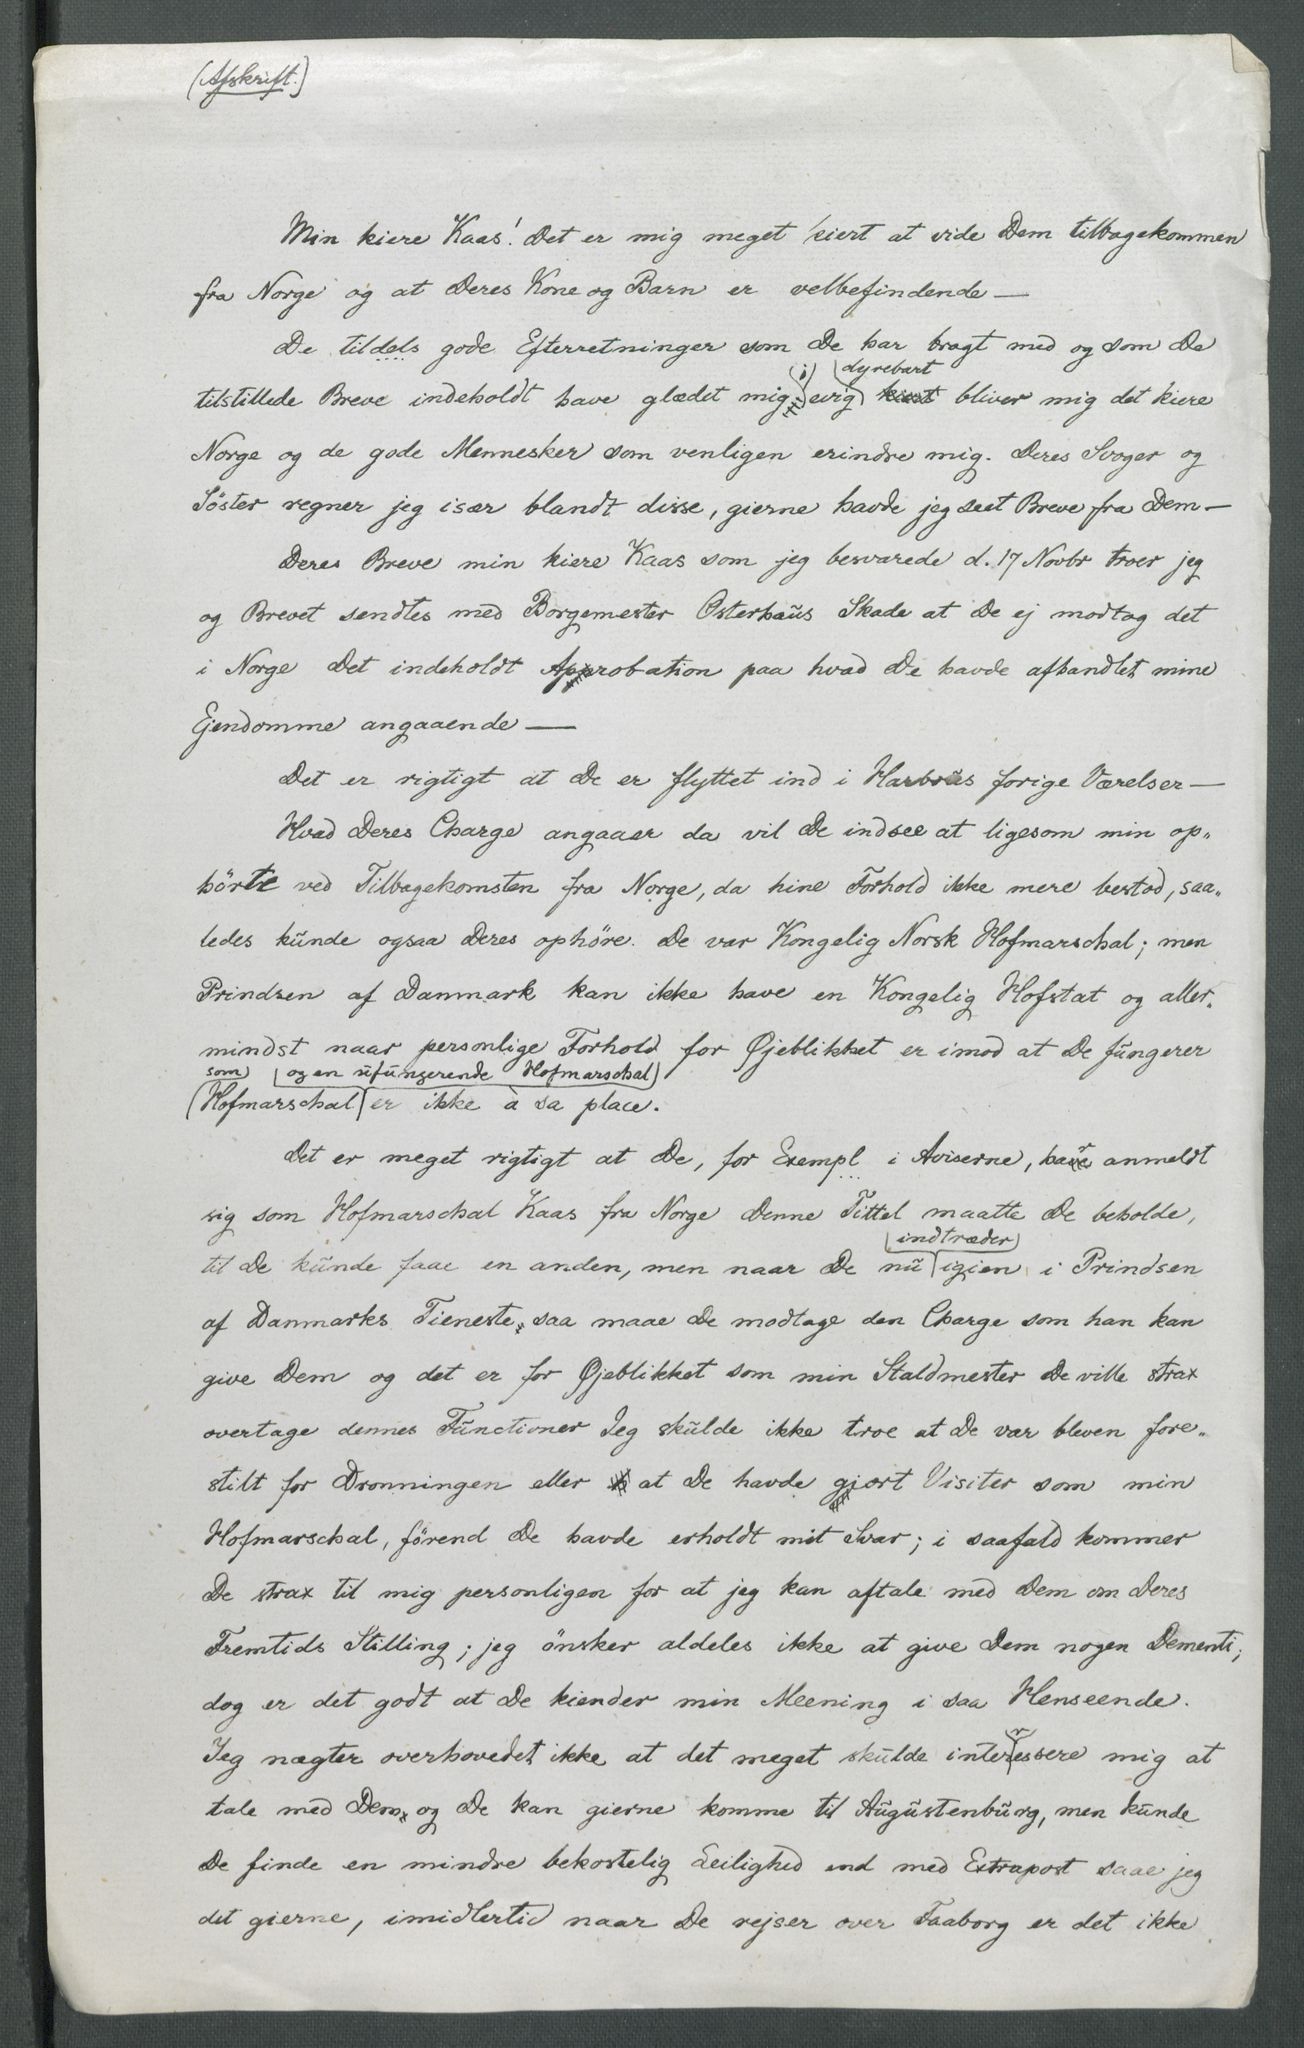 (Afskrift.)
Min kiere Kaas! Det er mig meget kiert at vide Dem tilbagekommen
fra Norge og at Deres Kone og Barn er velbefindende —
De tildels gode Efterretninger som De har bragt med og som De
(i) (dyrebart
tilstillede Breve indeholdt have glædet mig; evig kiert bliver mig det kiere
Norge og de gode Mennesker som venligen erindre mig. Deres Svoger og
Söster regner jeg især blandt disse, gierne havde jeg seet Breve fra Dem —
Deres Breve min kiere Kaas som jeg besvarede d. 17 Novbr troer jeg
og Brevet sendtes med Borgemester Osterhaus Skade at De ej modtog det
i Norge Det indeholdt Approbation paa hvad De havde afhandlet mine
Ejendomme angaaende —
Det er rigtigt at De er flyttet ind i Harboüs forige Værelser —
Hvad Deres Charge angaaer da vil De indsee at ligesom min op„
hörte ved Tilbagekomsten fra Norge, da hine Forhold ikke mere bestod, saa„
ledes kunde ogsaa Deres ophöre. De var Kongelig Norsk Hofmarschal; men
Prindsen af Danmark kan ikke have en Kongelig Hofstat og aller„
mindst naar personlige Forhold for Øjeblikket er imod at De fungerer
som) (og en ufungerende Hofmarschal)
(Hofmarschal) er ikke à sa place.
Det er meget rigtigt at De, for Exempl i Aviserne, har anmeldt
sig som Hofmarschal Kaas fra Norge Denne Tittel maatte De beholde,
(indtræder)
til De kunde faae en anden, men naar De nu igien i Prindsen
af Danmarks Tieneste, saa maae De modtage den Charge som han kan
give Dem og det er for Øjeblikket som min Staldmester De ville strax
overtage dennes Functioner Jeg skulde ikke troe at De var bleven fore„
stilt for Dronningen eller at De havde gjort Visiter som min
Hofmarschal, förend De havde erholdt mit Svar; i saafald kommer
De strax til mig personligen for at jeg kan aftale med Dem om Deres
Fremtids Stilling; jeg önsker aldeles ikke at give Dem nogen Dementi;
dog er det godt at De kiender min Meening i saa Henseende.
Jeg nægter overhovedet ikke at det meget skulde interressere mig at
tale med Dem, og De kan gierne komme til Augustenburg, men kunde
De finde en mindre bekostelig Leilighed end med Extrapost saae jeg
det gierne, imidlertid naar De rejser over Faaborg er det ikke